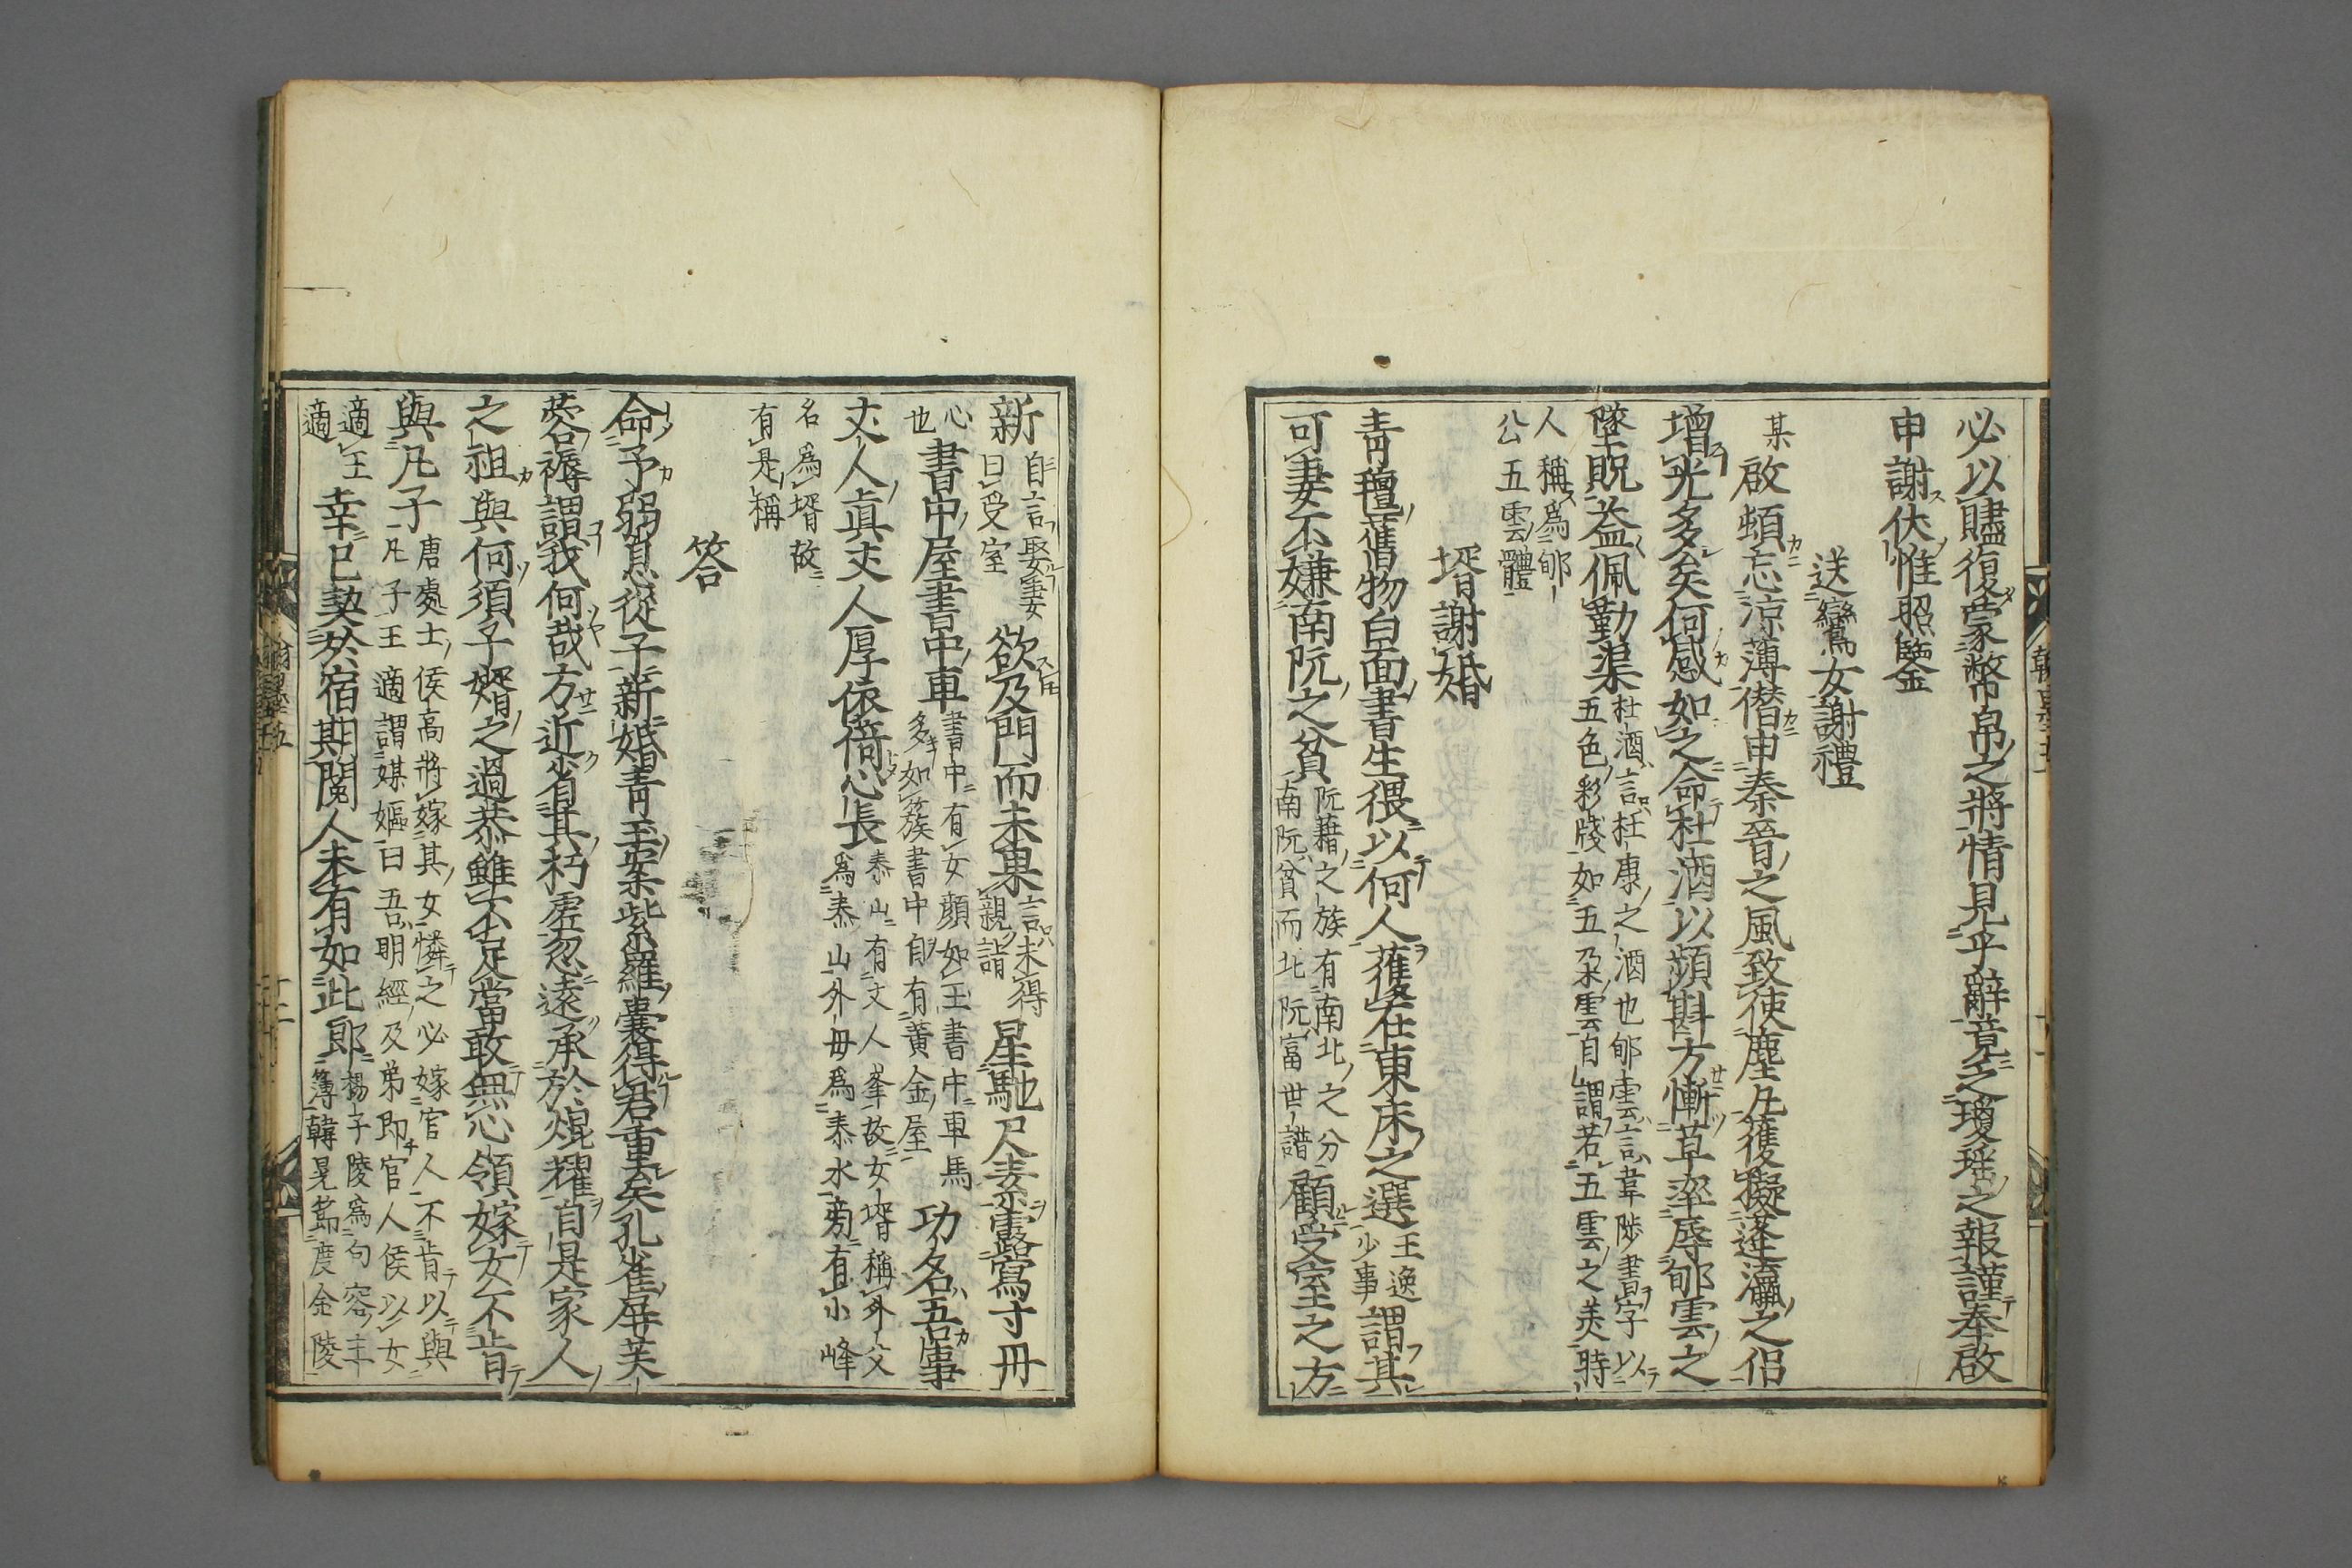 必以贐復蒙幣帛之將情見乎辭竟乏瓊瑤之報謹奉啟
申謝伏惟照鑒
送鸞女謝禮
某啟頓忘涼薄僣申秦晉之風致使塵凡獲擬蓬瀛之侶
增光多矣何感如之命杜酒以頻斟方慚草率辱郇雲之
墜貺益佩勤渠杜酒言杜康之酒也郇雲言韋陟書字以
五色彩牋如五朵雲自謂若五雲之美時
人稱為郇
公五雲體
壻謝婚
青氊舊物白面書生猥以何人獲在東床之選王逸
少事謂其
可妻不嫌南阮之貧阮藉之族有南北之分
南阮貧而北阮富世譜顧受室之方
新自言娶妻
曰受室欲及門而未果言未得
親詣星馳尺素露寫寸冊
心
也書中屋書中車書中有女顏如玉書中車馬
多如簇書中自有黃金屋功名吾事
丈人真丈人厚依倚心長泰山有丈人峯故女壻稱外父
為泰山外母為泰水旁有小峰
名為壻故
有是稱
答
命予弱息從子新婚青玉案紫羅囊得君重矣孔雀屏芙
蓉褥謂我何哉方近省其朽虛忽遠承於焜耀自是家人
之祖與何須子婿之過恭雖不足當敢無心領嫁女不肯
與凡子唐處士侯高將嫁其女憐之必嫁官人不肯以與
凡子王適謂媒嫗曰吾明經及弟即官人侯以女
適王
適幸已契於宿期閱人未有如此郎楊子陵為句容主
簿韓晃節度金陵